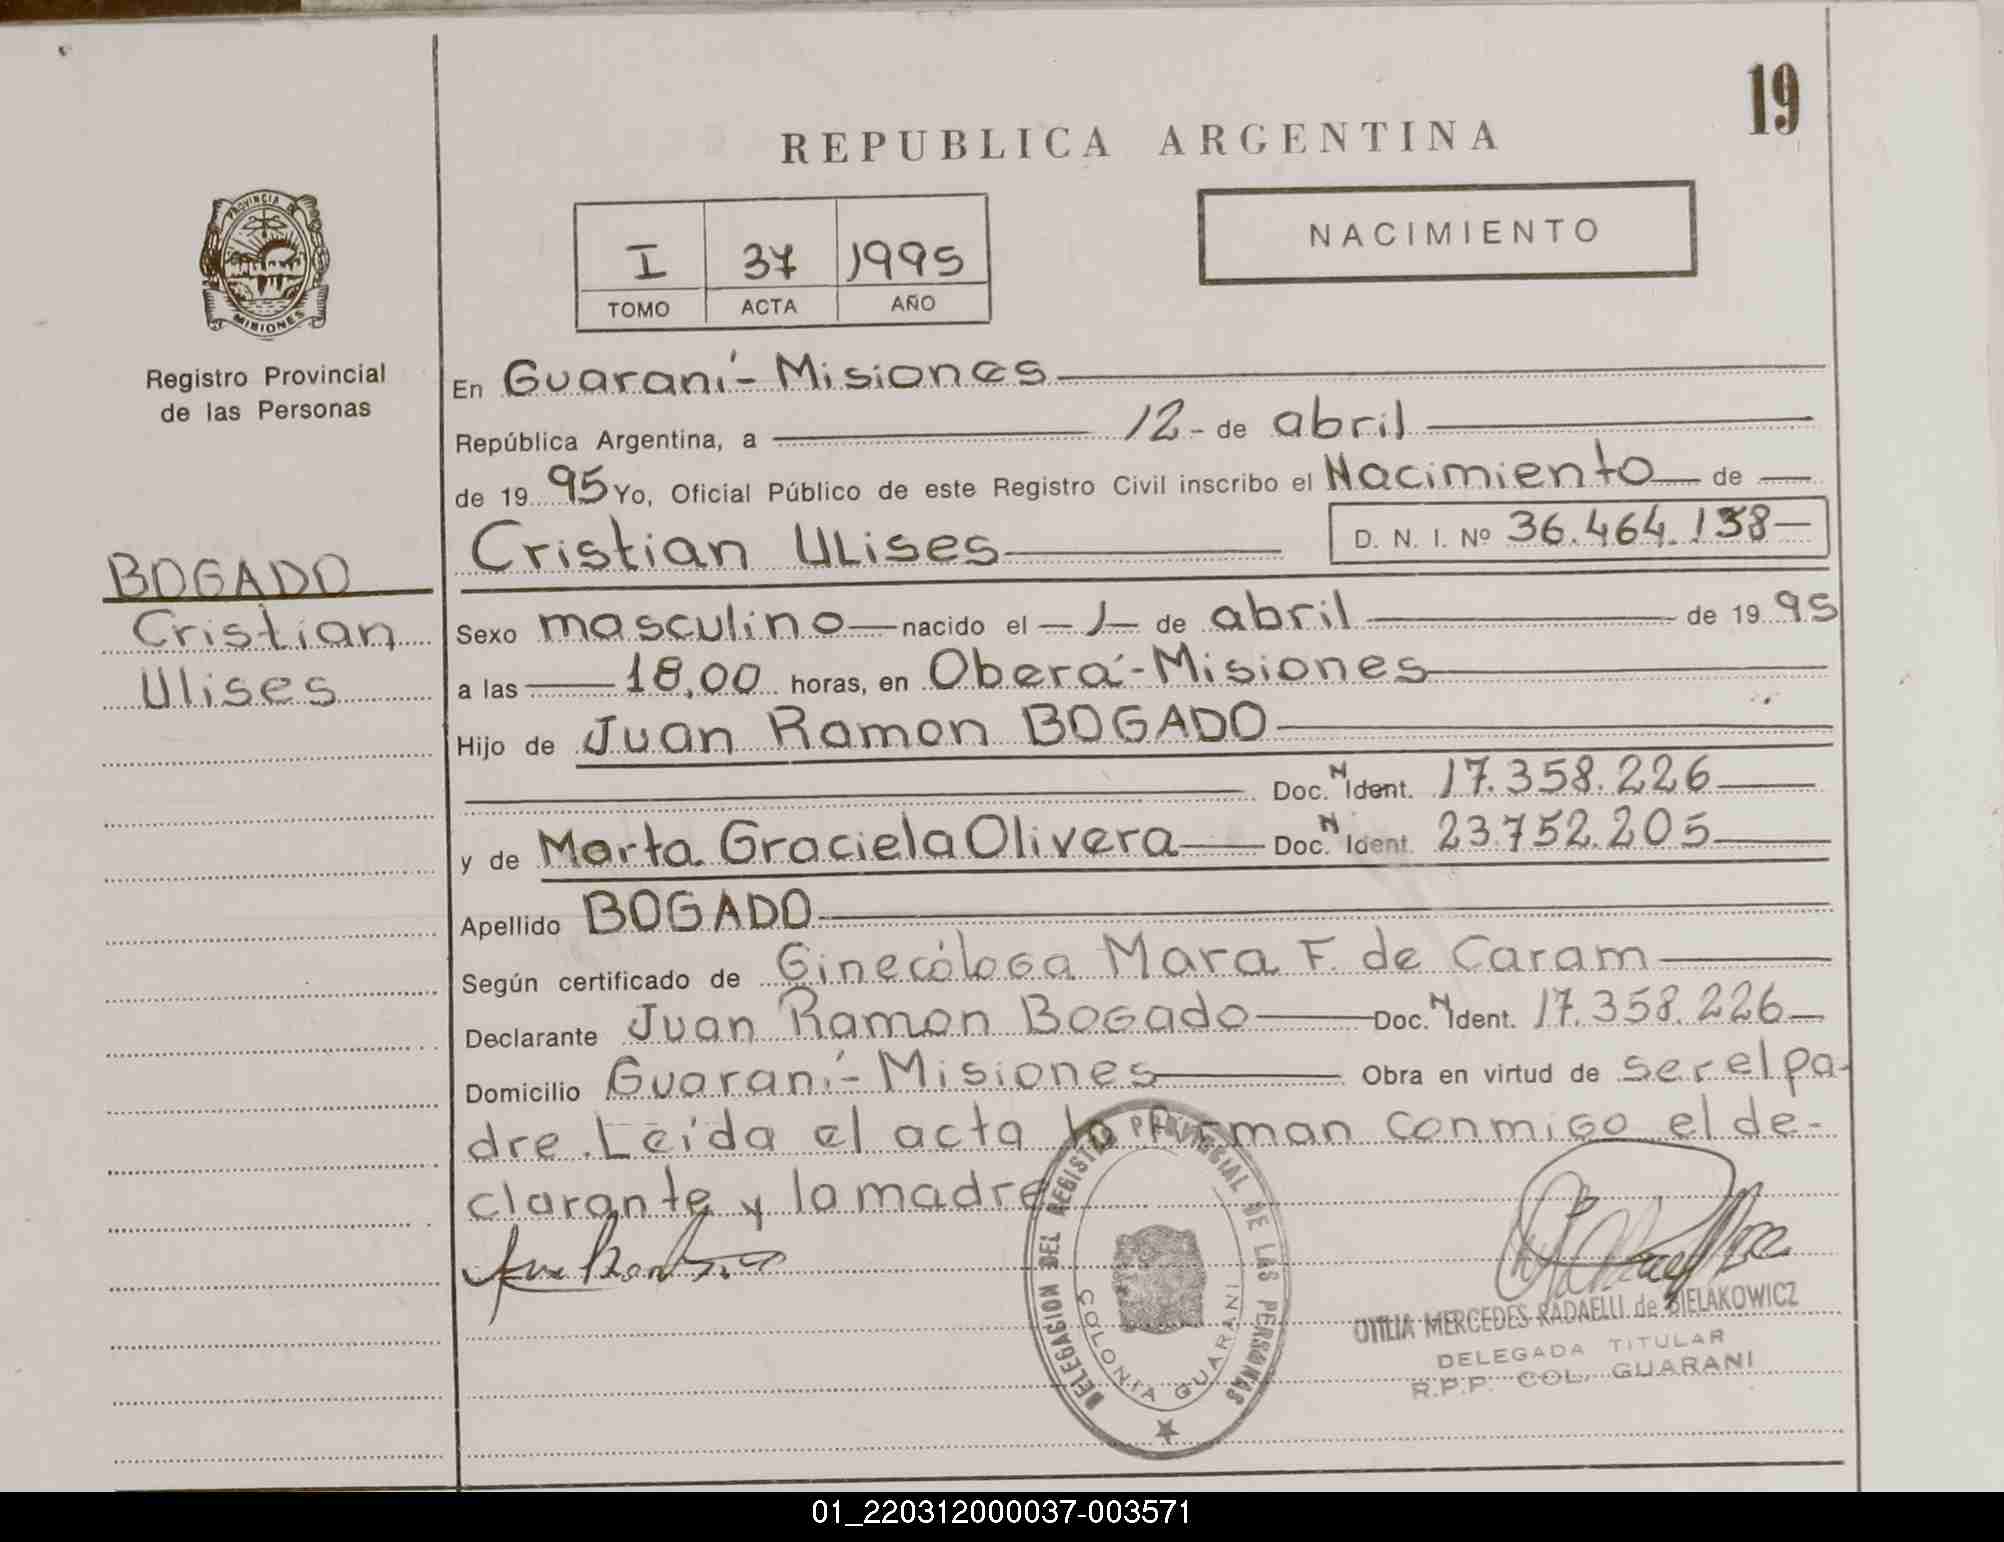 19
REPUBLICA ARGENTINA
PROVINCIA DE
MISIONES
Registro Provincial
de las Personas
I 37 1995
TOMO ACTA AÑO
NACIMIENTO
En Guaraní - Misiones
República Argentina, a 12 - de abril
de 19 95 Yo, Oficial Público de este Registro Civil inscribo el Nacimiento de
Cristian Ulises D. N. I. Nº 36.464.138
BOGADO
Cristian
Ulises
Sexo masculino nacido el 1 de abril de 19 95
a las 18,00 horas, en Oberá - Misiones
Hijo de Juan Ramon BOGADO
Doc. N Ident. 17.358.226
y de Marta Graciela Olivera Doc. N Ident. 23.752.205
Apellido BOGADO
Según certificado de Ginecóloga Mara F. de Caram
Declarante Juan Ramon Bogado Doc. N Ident. 17.358.226
Domicilio Guaraní - Misiones Obra en virtud de ser el pa-
dre. Leída el acta la firman conmigo el de-
clarante y la madre
DELEGACION DEL REGISTRO PROVINCIAL DE LAS PERSONAS
COLONIA GUARANI
OTILIA MERCEDES RADAELLI de BIELAKOWICZ
DELEGADA TITULAR
R.P.P. COL. GUARANI
01_220312000037-003571